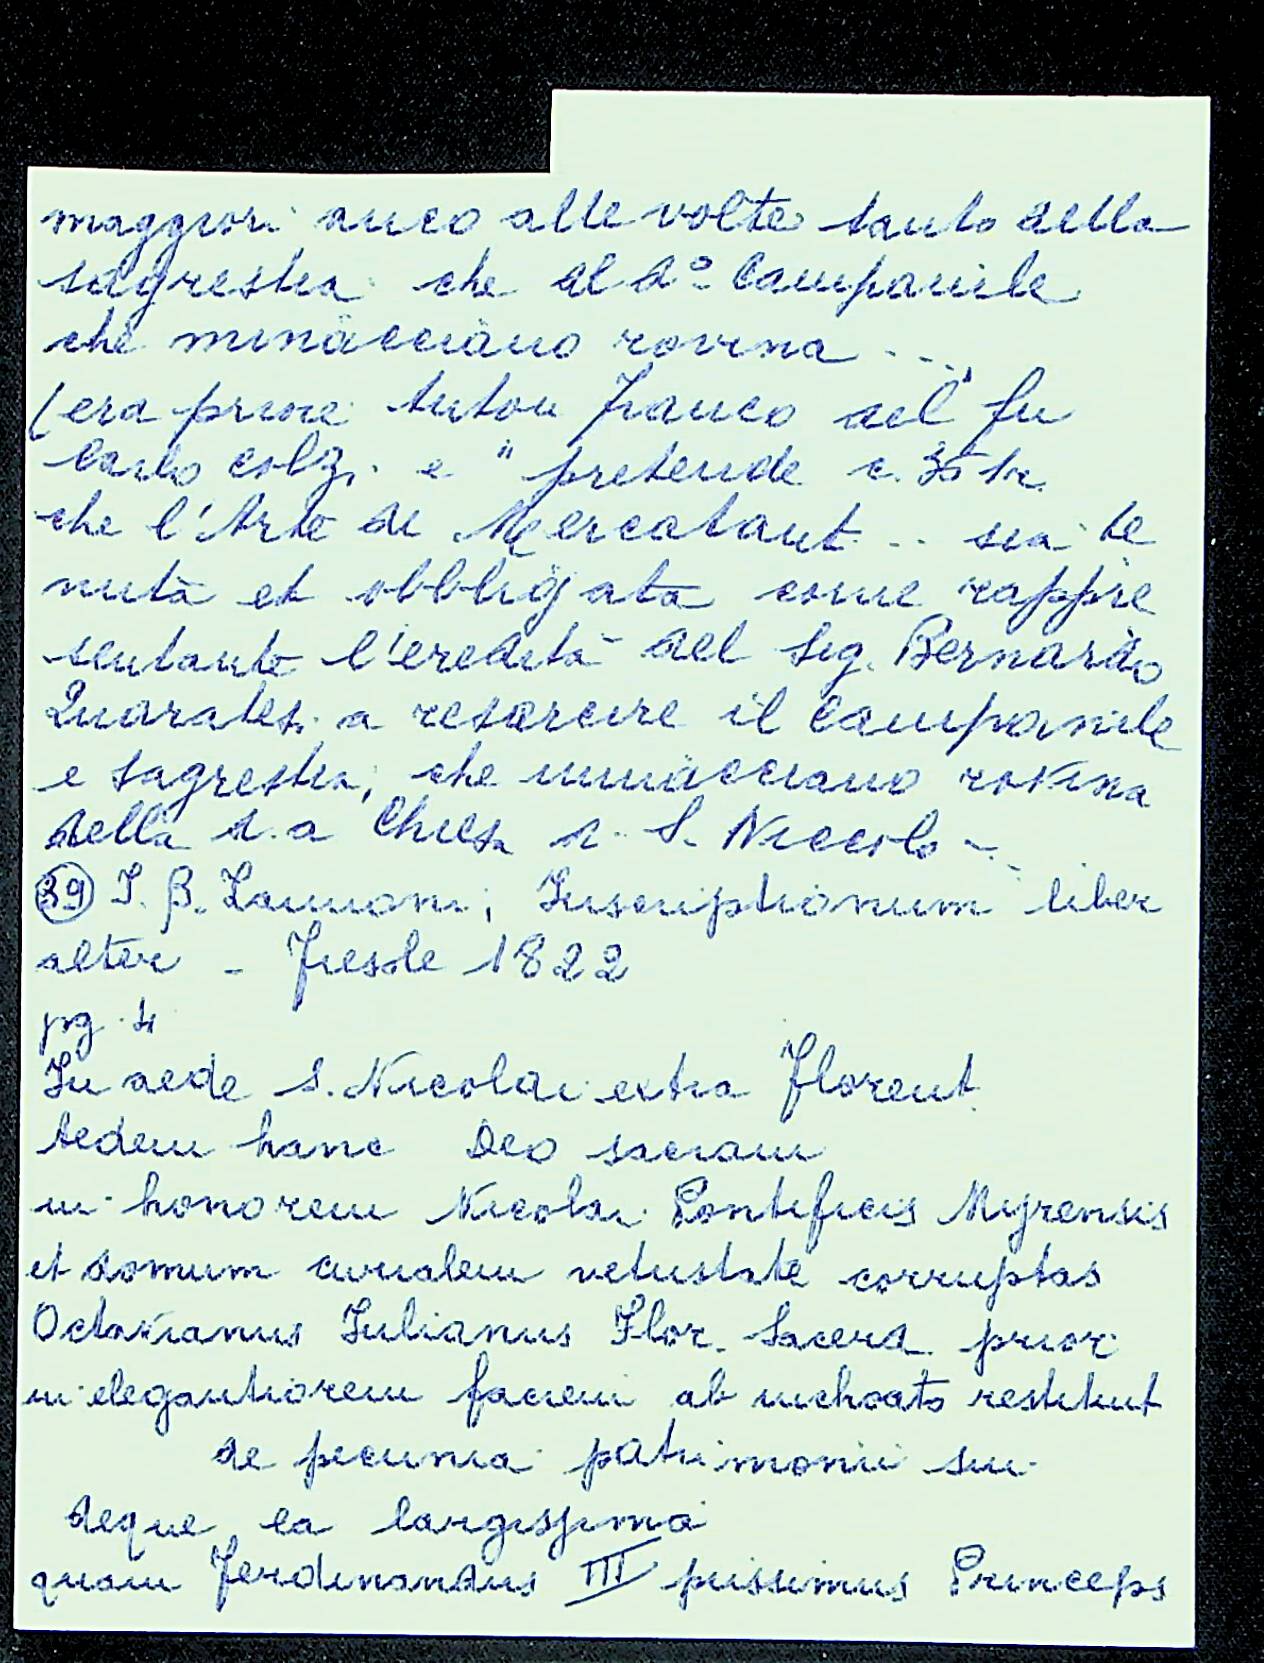 maggiori anco alle volte tanto della
sagrestia che al d° Campanile
che minacciano rovina ...
(era priore Anton Franco del fu
Carlo Colzi e " pretende
che l'Arte di Mercatant... sia te
nuta et obbligata come rappre
sentante l'eredità del Sig. Bernardo
Quaratesi a resarcire il campanile
e sagrestia, che minacciano rovina
della d.a Chiesa d. S. Niccolo -..
(39) I. B. Zannoni, Inscriptionum liber
alter - Fiesole 1822
pg. 4
In aede S. Nicolai extra Florent.
Aedem hanc Deo sacram
in honorem Nicolai Pontificis Myrensis
et domum curialem vetustate corruptas
Octavianus Iulianus Flor. Sacerd. prior
in elegantiorem faciem ab inchoato restituit
de pecunia patrimonii sui
deque ea largissima
quam Ferdinandus III piissimus Princeps